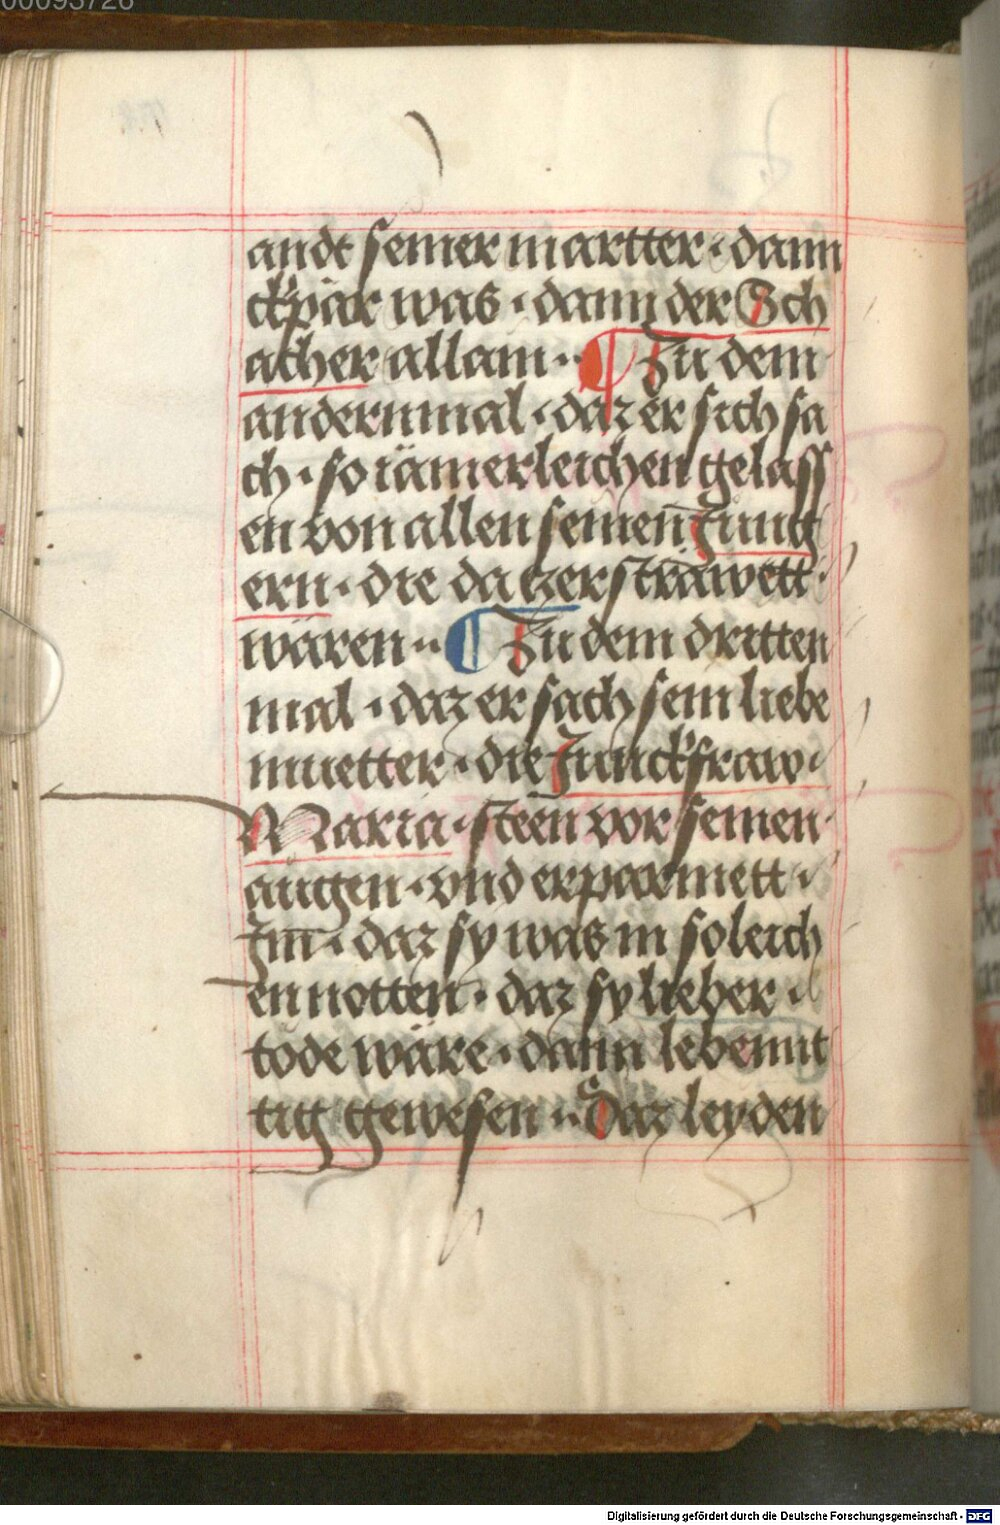 00093726
andt seiner martter · dann
ckpär was · dann der Sch
acher allain ·· ¶ Zu dem
andernmal · daz er sich sa
ch · so iämerleichen gelass
en von allen seinen Jung
ern · die da tzerstrawett ·
wären ·· ¶ Zu dem dritten
mal · daz er sach sein liebe
muetter · die Junckfraw ·
Maria · steen vor seinen ·
augen · vnd erparmett ·
Jm · daz sy was in soleich
en notten · daz sy lieber ·
tode wäre · dann lebennt
tig gewesen ·· Daz leyden
Digitalisierung gefördert durch die Deutsche Forschungsgemeinschaft - DFG